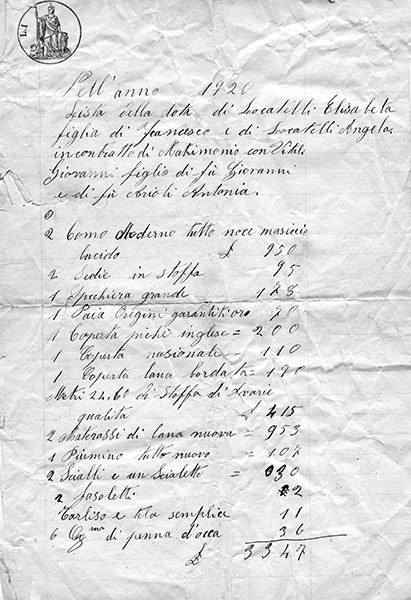 L.1
Nell'anno 1920
Lista della dota di Locatelli Elisabeta
figlia di Francesco e di Locatelli Angela.
in contratto di Matrimonio con Vitali
Giovanni figlio di fù Giovanni
e di fù Arioli Antonia.
2 Comò Moderno tutto noce masiccio
lucido £ 950
2 Sedie in stoffa 95
1 Specchiera grande 128
1 Paia Origini garantiti oro 70
1 Coperta pichè inglese = 200
1 Coperta nasionale = 110
1 Coperta lana bordata = 190
Metri 24.60 di stoffa di svarie
qualità £ 415
2 Materassi di lana nuova = 953
1 Piumino tutto nuovo = 107
2 Scialli e un Scialetto =
2 fasoletti
Tarliso e tela semplice 11
6 di penna d'occa 36
£ 3347